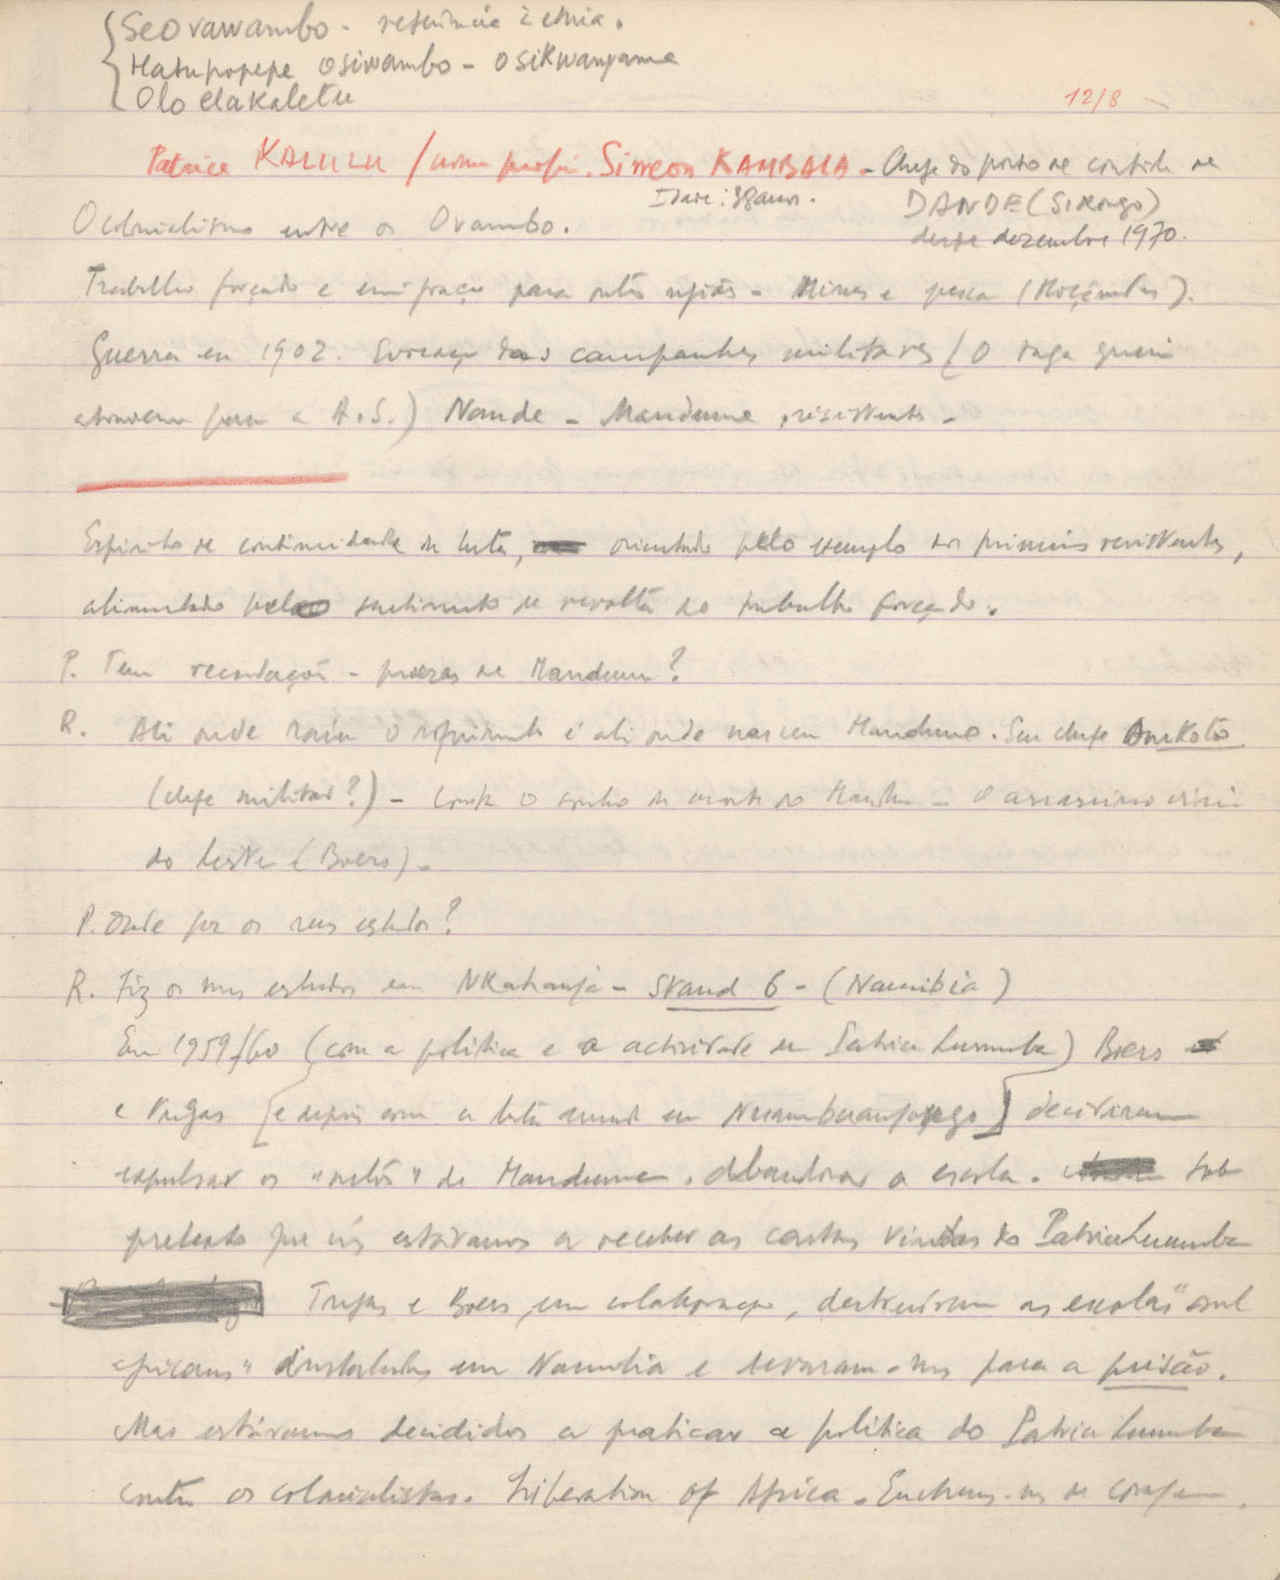 Seovawambo - referência à etnia.
Hatupopepe Osiwambo - Osikwanyama
Olo elakaletu
12/8
Patrice KALULU / nome Simeon KAMBALA - Chefe do posto de controle de
Idade: anos.
DANDE (Sikongo)
desde dezembro 1970.
O colonialismo entre os Ovambo.
Trabalho forçado e emigração para outras regiões - Minas e pesca (Moçâmedes).
Guerra em 1902. Evocação das campanhas militares (O tuga queria
atravessar para a A.S.) Nande - Mandume, resistentes -
Espírito de continuidade da luta, orientado pelo exemplo dos primeiros resistentes,
alimentado pelo sentimento de revolta do trabalho forçado.
P. Tem recordações - proezas de Mandume?
R. Ali onde o é ali onde nasceu Mandume. Seu chefe
(chefe militar?) - o sonho da morte do - o assassino viria
do leste (Boers) -
P. Onde fez os seus estudos?
R. Fiz os meus estudos em NKahanja - Stand 6 - (Namibia)
Em 1959/60 (com a política e a actividade de Patrice Lumumba) Boers
e Tugas [e depois com a luta armada em ] decidiram
expulsar os "netos" de Mandume. Abandonar a escola. Sob
pretexto que nós estávamos a receber as cartas vindas do Patrice Lumumba
Tugas e Boers, em colaboração, destruíram as escolas "sul
africanas" instaladas em Namibia e levaram-nos para a prisão.
Mas estávamos decididos a praticar a política do Patrice Lumumba
contra os colonialistas. Liberation of Africa. Encheu-nos de coragem.